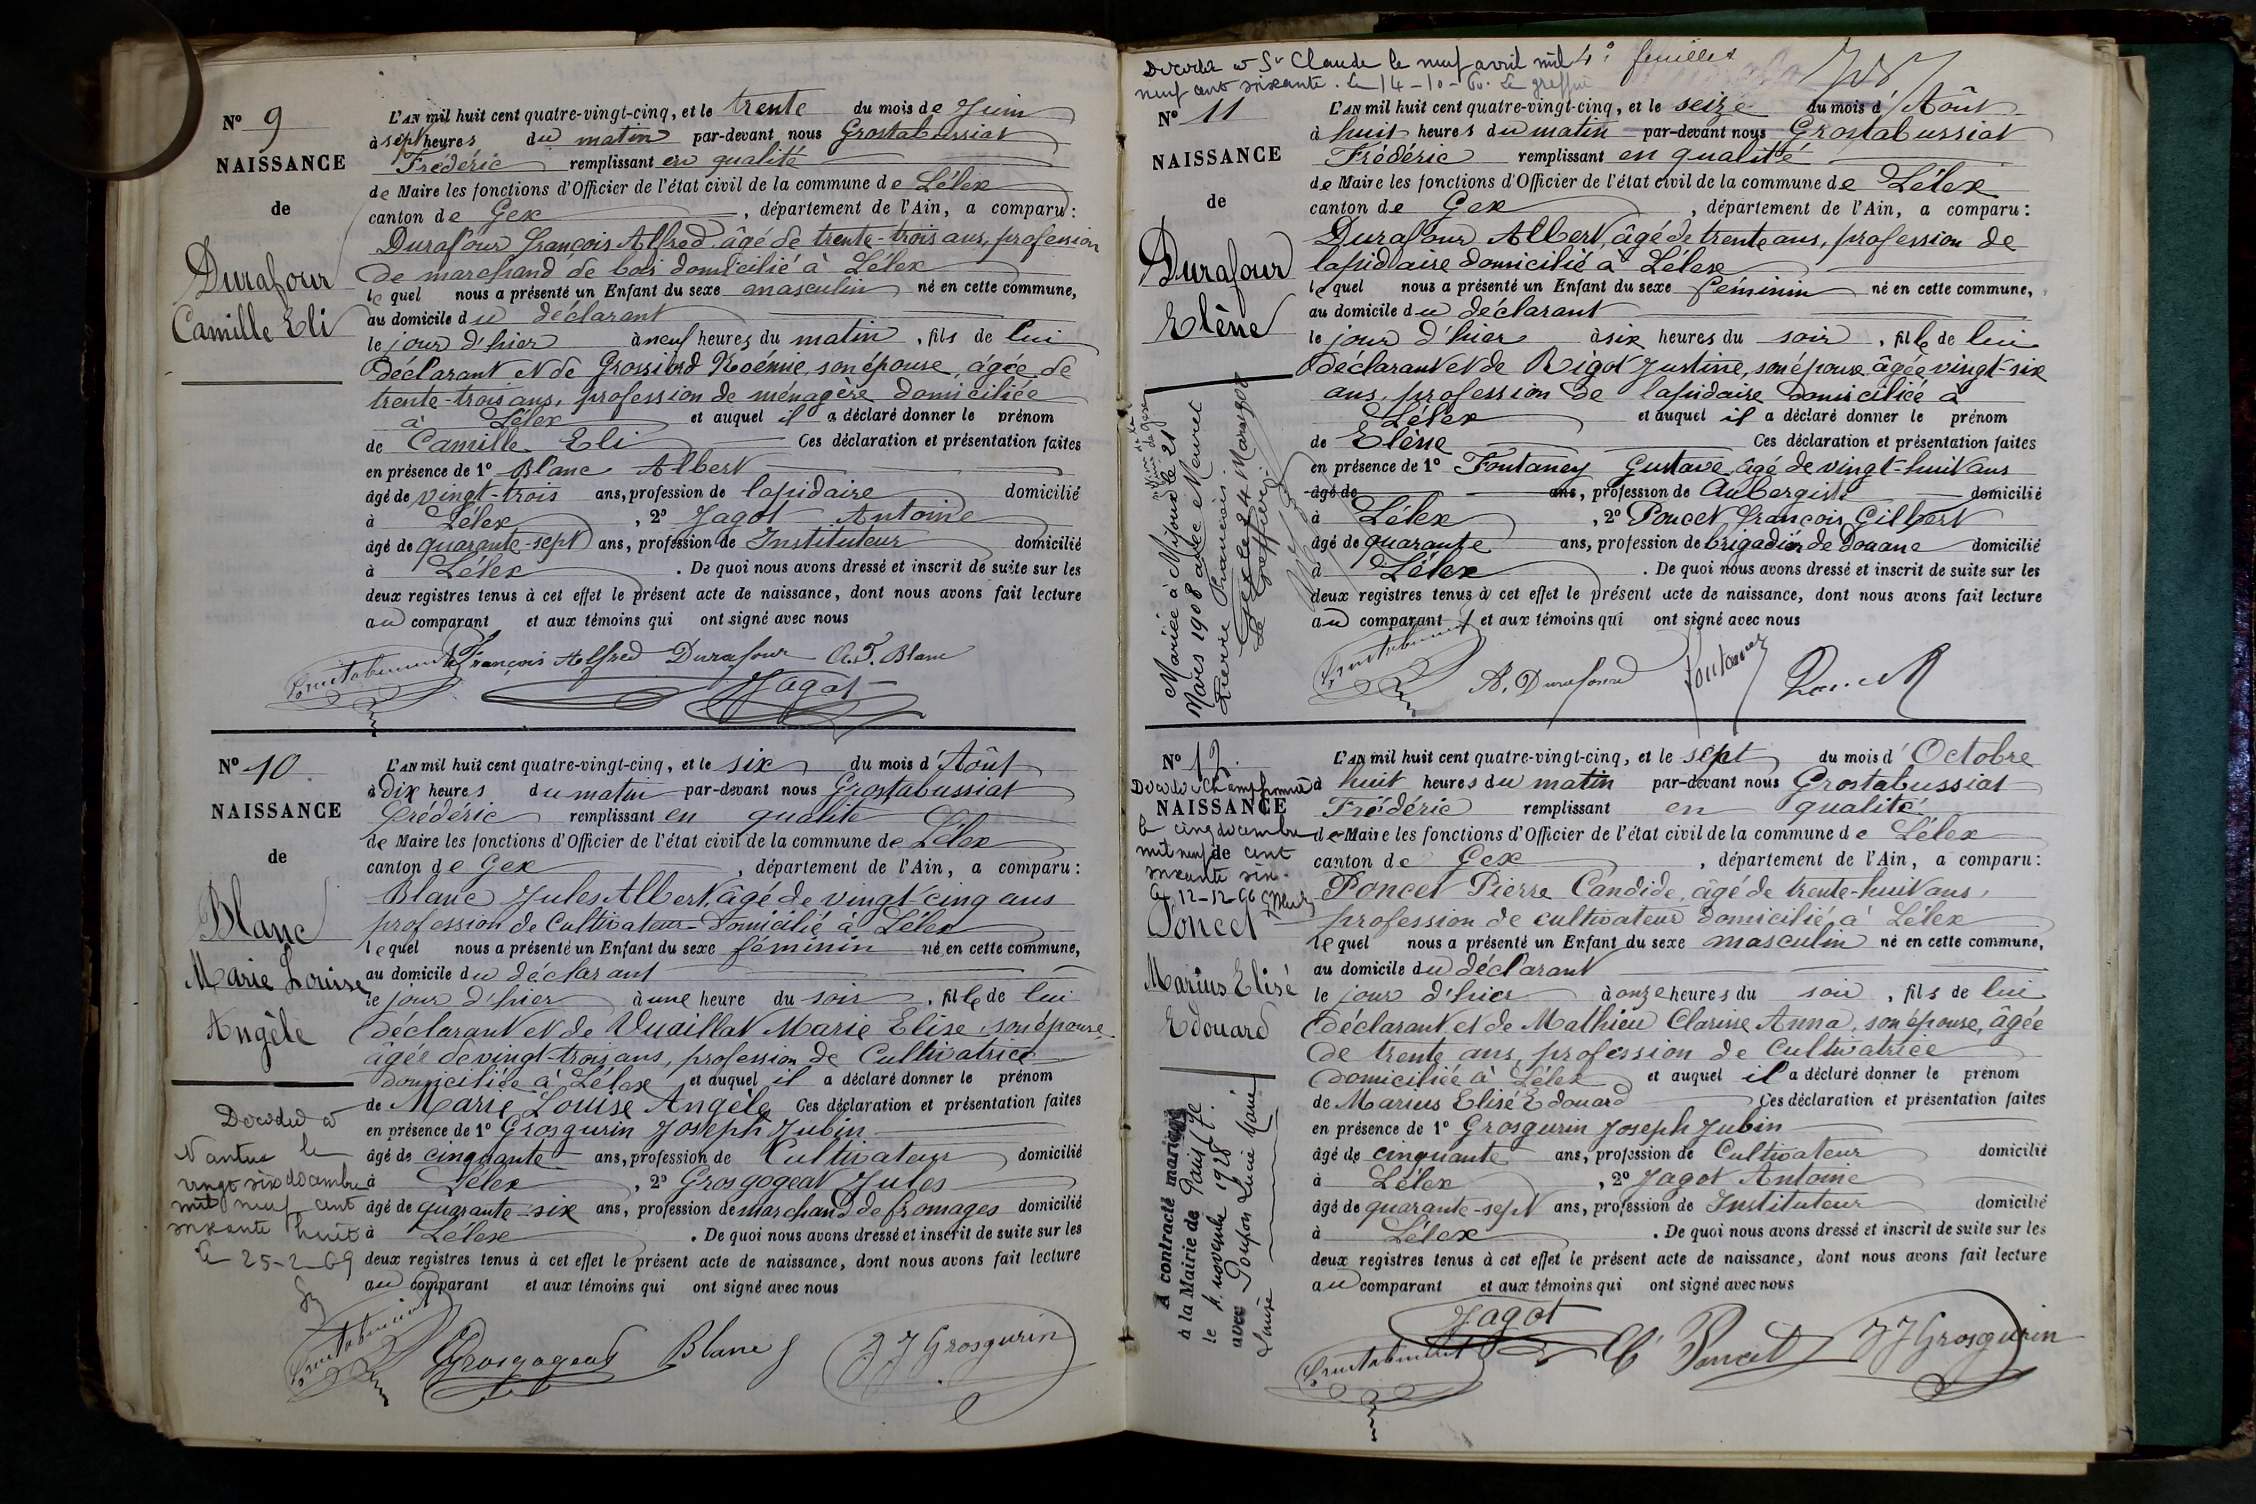 N° 9
NAISSANCE
de
Durafour
Camille Eli
L'AN mil huit cent quatre-vingt-cinq, et le trente du mois de Juin
à sept heures du matin par-devant nous Grostabussiat
Frédéric remplissant en qualité
de Maire les fonctions d'Officier de l'état civil de la commune de Lélex
canton de Gex, département de l'Ain, a comparu:
Durafour François Alfred âgé de trente-trois ans, profession
de marchand de bois domicilié à Lélex
lequel nous a présenté un Enfant du sexe masculin né en cette commune,
au domicile du déclarant
le jour d'hier à neuf heures du matin, fils de lui
déclarant et de Grossiord Noémie, son épouse, âgée de
trente-trois ans, profession de ménagère domiciliée
à Lélex et auquel il a déclaré donner le prénom
de Camille Eli Ces déclaration et présentation faites
en présence de 1° Blanc Albert
âgé de vingt-trois ans, profession de lapidaire domicilié
à Lélex, 2° Jagot Antoine
âgé de quarante-sept ans, profession de Instituteur domicilié
à Lélex. De quoi nous avons dressé et inscrit de suite sur les
deux registres tenus à cet effet le présent acte de naissance, dont nous avons fait lecture
au comparant et aux témoins qui ont signé avec nous
François Alfred Durafour A. J. Blanc
Jagot
N° 10.
NAISSANCE
de
Blanc
Marie Louise
Angèle
Décédée à
Nantua le
vingt six décembre
mil neuf cent
soixante huit
Le 25-2-69
L'AN mil huit cent quatre-vingt-cinq, et le six du mois d'Août
à dix heures du matin par-devant nous Grostabussiat
Frédéric remplissant en qualité
de Maire les fonctions d'Officier de l'état civil de la commune de Lélex
canton de Gex, département de l'Ain, a comparu:
Blanc Jules Albert, âgé de vingt-cinq ans
profession de Cultivateur domicilié à Lélex
lequel nous a présenté un Enfant du sexe féminin né en cette commune,
au domicile du déclarant
le jour d'hier à une heure du soir, fille de lui
déclarant et de Vuaillat Marie Elise, son épouse
âgée de vingt-trois ans, profession de Cultivatrice
domiciliée à Lélex et auquel il a déclaré donner le prénom
de Marie Louise Angèle Ces déclaration et présentation faites
en présence de 1° Grosgurin Joseph Jubin
âgé de cinquante ans, profession de Cultivateur domicilié
à Lélex, 2° Grosgogeat Jules
âgé de quarante-six ans, profession de marchand de fromages domicilié
à Lélex. De quoi nous avons dressé et inscrit de suite sur les
deux registres tenus à cet effet le présent acte de naissance, dont nous avons fait lecture
au comparant et aux témoins qui ont signé avec nous
Grosgogeat Blanc J J Grosgurin
Décédée à St Claude le neuf avril mil
neuf cent soixante. Le 14-10-60. Le greffier
4e feuillet
N° 11
NAISSANCE
de
Durafour
Elène
Mariée à Mijoux le 21
Mars 1908 avec Manret
Pierre François
Gex le 24 Mars 1908
Le Greffier
L'AN mil huit cent quatre-vingt-cinq, et le seize du mois d'Août
à huit heures du matin par-devant nous Grostabussiat
Frédéric remplissant en qualité
de Maire les fonctions d'Officier de l'état civil de la commune de Lélex
canton de Gex, département de l'Ain, a comparu:
Durafour Albert, âgé de trente ans, profession de
lapidaire domicilié à Lélex
lequel nous a présenté un Enfant du sexe féminin né en cette commune,
au domicile du déclarant
le jour d'hier à six heures du soir, fille de lui
déclarant et de Rigot Justine, son épouse âgée vingt-six
ans, profession de lapidaire domiciliée à
Lélex et auquel il a déclaré donner le prénom
de Elène Ces déclaration et présentation faites
en présence de 1° Fontaney Gustave âgé de vingt-huit ans
âgé de ans, profession de Aubergiste domicilié
à Lélex, 2° Poncet François Gilbert
âgé de quarante ans, profession de brigadier de Douane domicilié
à Lélex. De quoi nous avons dressé et inscrit de suite sur les
deux registres tenus à cet effet le présent acte de naissance, dont nous avons fait lecture
au comparant et aux témoins qui ont signé avec nous
A. Durafour Fontaney Poncet
N° 12.
Décédé à Champfromier
NAISSANCE
le cinq décembre
mil neuf cent
de
soixante six.
Le 12-12-66
Poncet
Marius Elisé
Edouard
A contracté mariage
à la Mairie de Paris 7e
le 4 novembre 1928
avec Poupon Lucie Marie
Louise
L'AN mil huit cent quatre-vingt-cinq, et le sept du mois d'Octobre
à huit heures du matin par-devant nous Grostabussiat
Frédéric remplissant en qualité
de Maire les fonctions d'Officier de l'état civil de la commune de Lélex
canton de Gex, département de l'Ain, a comparu:
Poncet Pierre Candide, âgé de trente-huit ans,
profession de cultivateur domicilié à Lélex
lequel nous a présenté un Enfant du sexe masculin né en cette commune,
au domicile du déclarant
le jour d'hier à onze heures du soir, fils de lui
déclarant et de Mathieu Clarisse Anna, son épouse, âgée
de trente ans, profession de Cultivatrice
domiciliée à Lélex et auquel il a déclaré donner le prénom
de Marius Elisé Edouard Ces déclaration et présentation faites
en présence de 1° Grosgurin Joseph Jubin
âgé de cinquante ans, profession de Cultivateur domicilié
à Lélex, 2° Jagot Antoine
âgé de quarante-sept ans, profession de Instituteur domicilié
à Lélex. De quoi nous avons dressé et inscrit de suite sur les
deux registres tenus à cet effet le présent acte de naissance, dont nous avons fait lecture
au comparant et aux témoins qui ont signé avec nous
Jagot
C Poncet J J Grosgurin